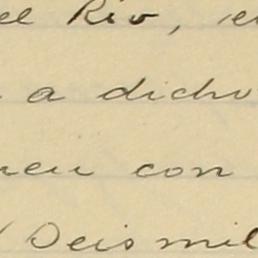 el Rio, e
a dicho
neu con
Seis mil